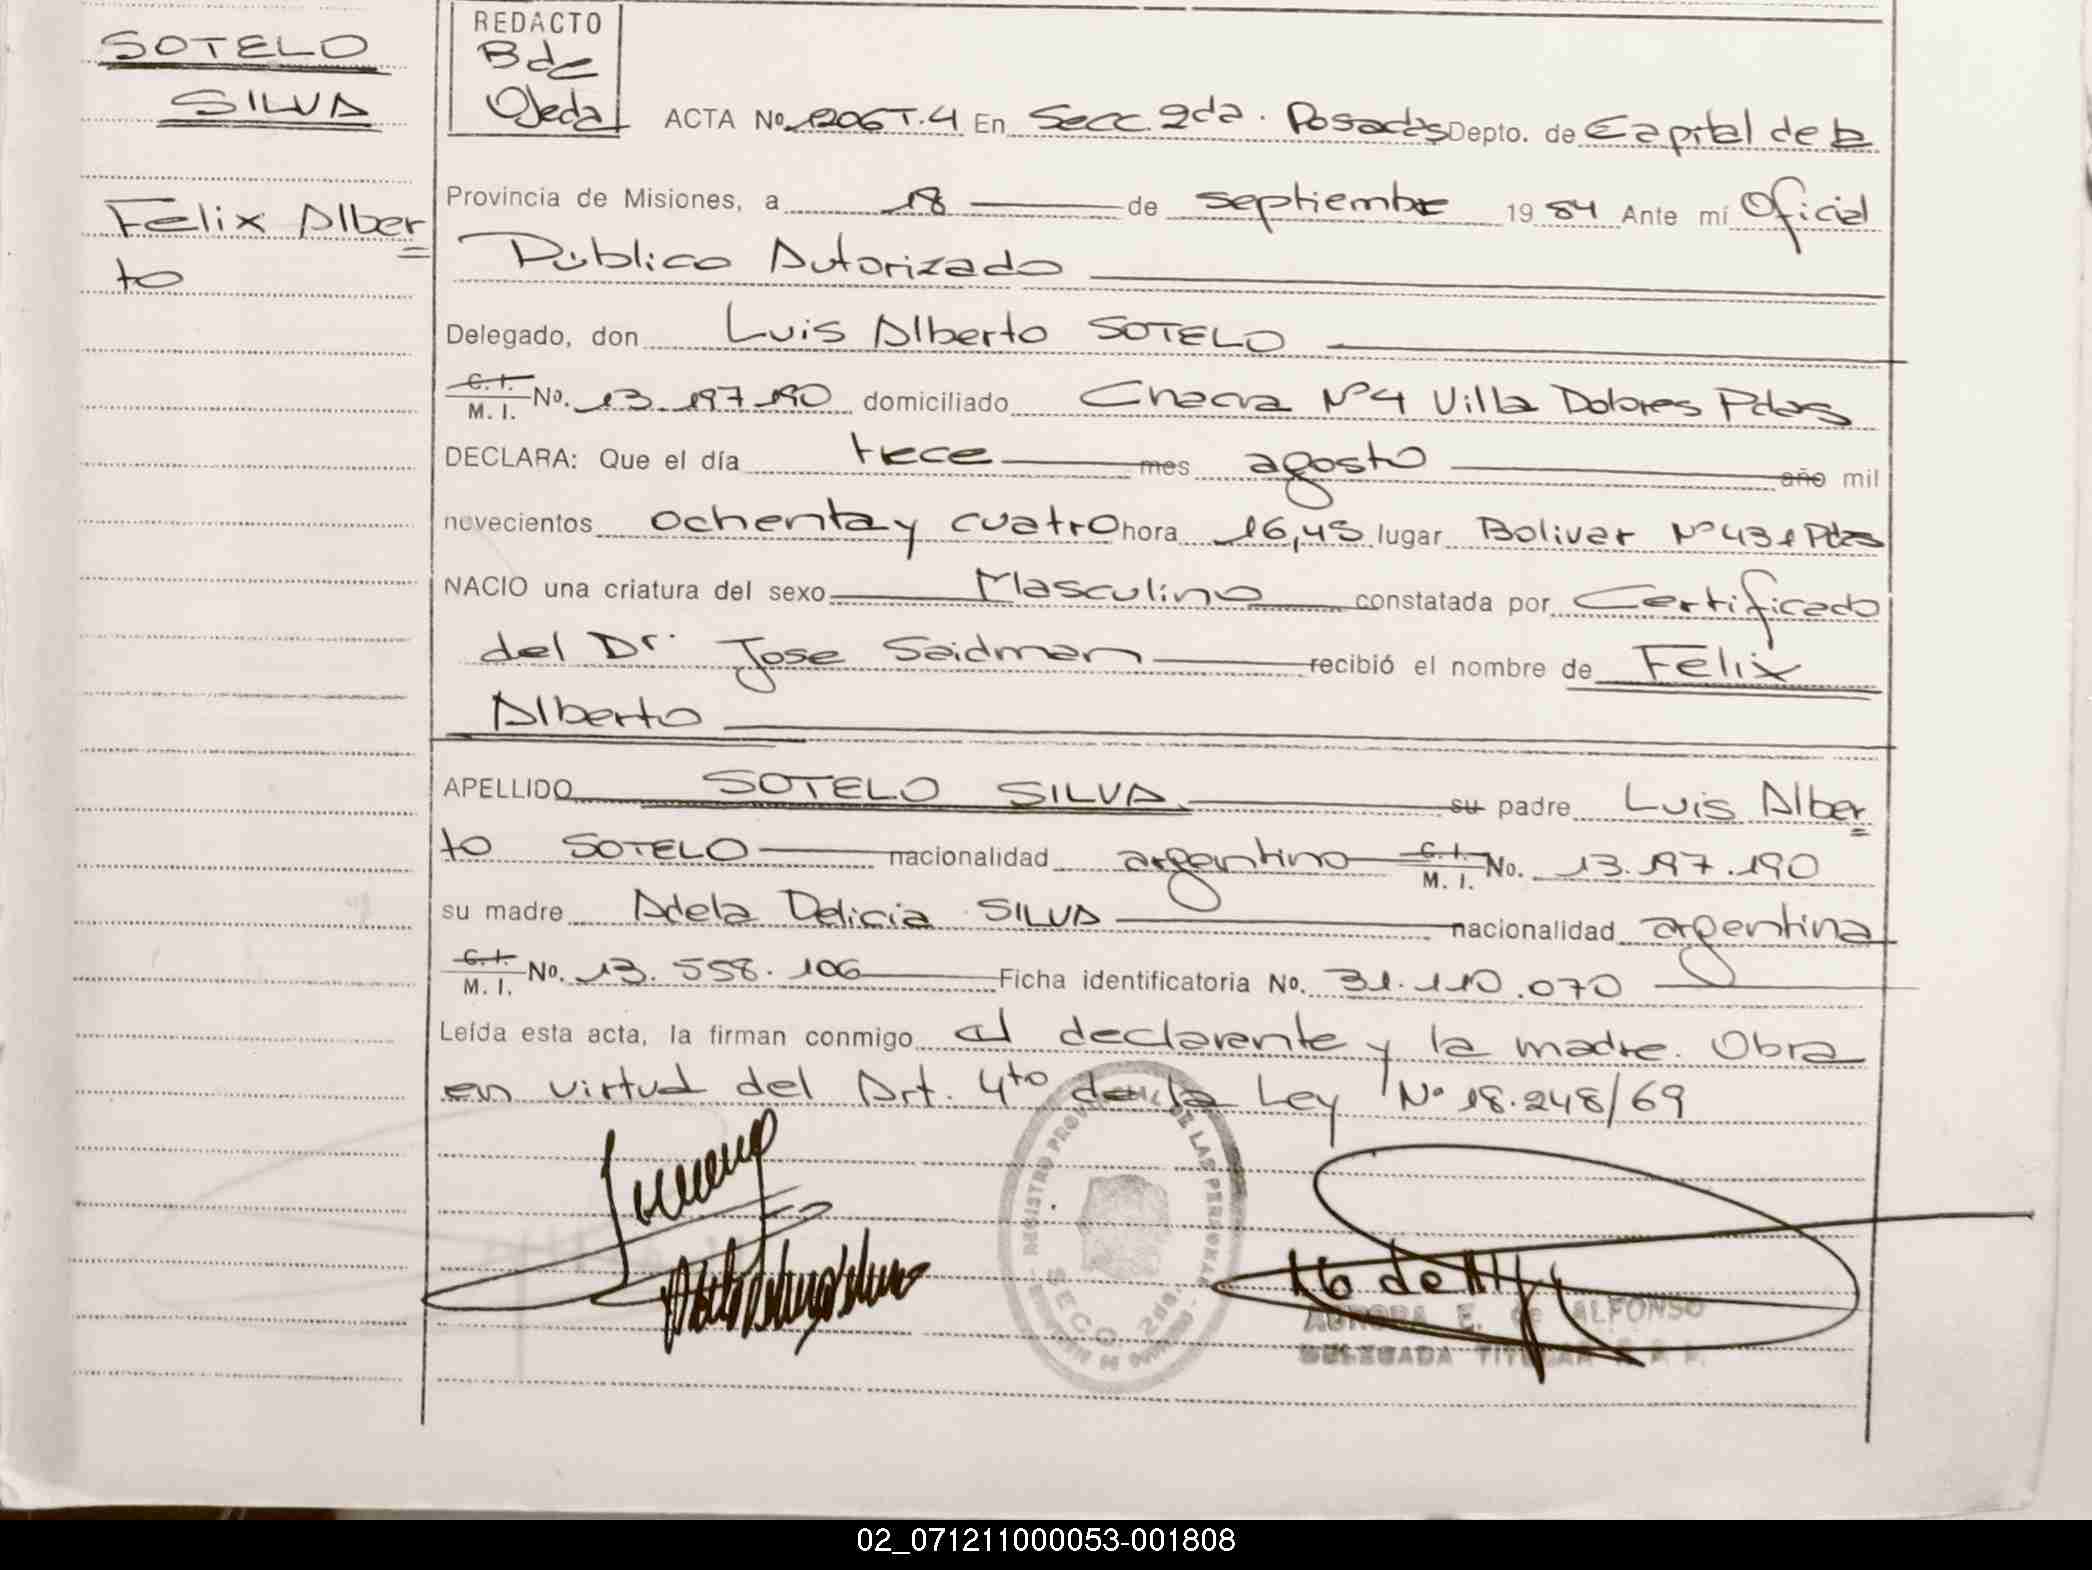 SOTELO
SILVA
Felix Alber
to
REDACTO
B de
Ojeda
ACTA No. 1206 T.4 En Secc. 2da. Posadas Depto. de Capital de la
Provincia de Misiones, a 18 de septiembre 1984 Ante mí Oficial
Público Autorizado
Delegado, don Luis Alberto SOTELO
C. I.
M. I. No. 13.197.190 domiciliado Chacra Nº4 Villa Dolores Pdas
DECLARA: Que el día trece mes agosto año mil
novecientos ochenta y cuatro hora 16,45 lugar Bolivar Nº 431 Pdas
NACIO una criatura del sexo Masculino constatada por Certificado
del Dr. Jose Seidman recibió el nombre de Felix
Alberto
APELLIDO SOTELO SILVA su padre Luis Alber
to SOTELO nacionalidad argentino C. I. M. I. No. 13.197.190
su madre Adela Delicia SILVA nacionalidad argentina
C. I.
M. I. No. 13.558.106 Ficha identificatoria No. 31.110.070
Leída esta acta, la firman conmigo el declarante y la madre. Obra
en virtud del Art. 4to de la Ley Nº 18.248/69
REGISTRO PROVINCIAL DE LAS PERSONAS
SECC. 2da.
AURORA E. de ALFONSO
DELEGADA TITULAR
02_071211000053-001808